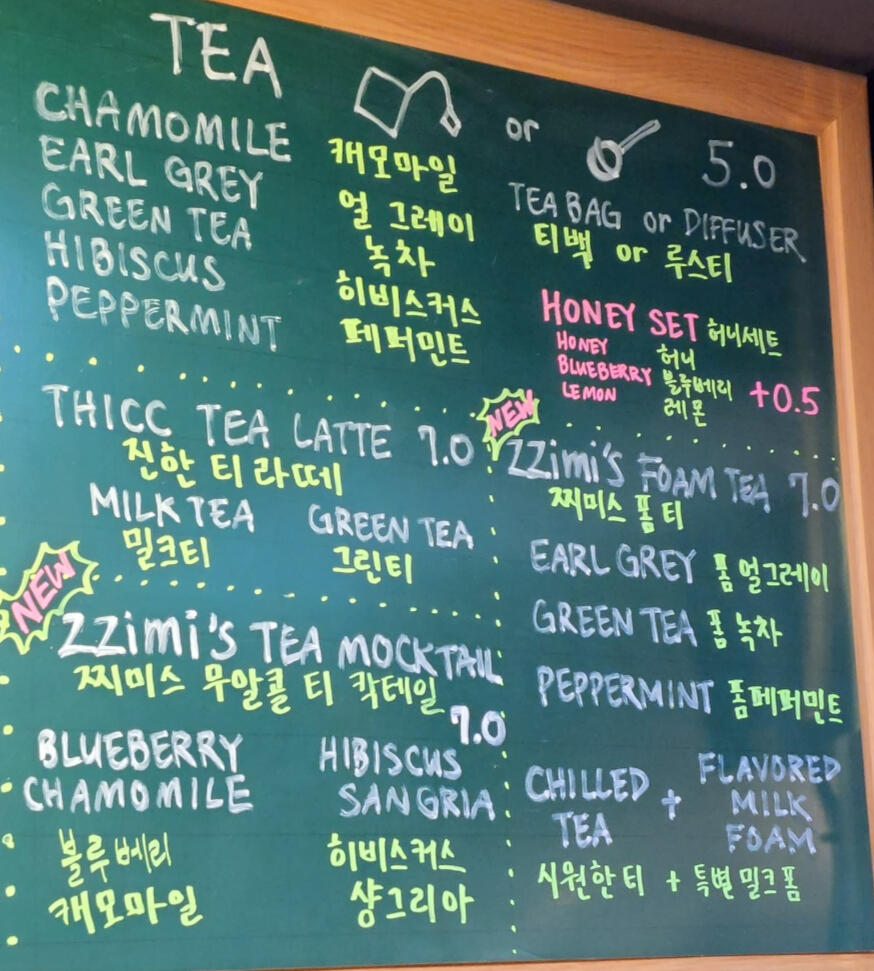 TEA
or
5.0
CHAMOMILE 캐모마일
EARL GREY 얼 그레이
GREEN TEA 녹차
HIBISCUS 히비스커스
PEPPERMINT 페퍼민트
TEA BAG or DIFFUSER
티백 or 루스티
HONEY SET 허니세트
HONEY 허니
BLUEBERRY 블루베리
LEMON 레몬
+0.5
THICC TEA LATTE 7.0
진한 티 라떼
MILK TEA GREEN TEA
밀크티 그린티
NEW
ZZimi's TEA MOCKTAIL
찌미스 무알콜 티 칵테일
7.0
BLUEBERRY
CHAMOMILE
블루베리
캐모마일
HIBISCUS
SANGRIA
히비스커스
샹그리아
NEW
ZZimi's FOAM TEA 7.0
찌미스 폼 티
EARL GREY 폼 얼그레이
GREEN TEA 폼 녹차
PEPPERMINT 폼페퍼민트
CHILLED TEA + FLAVORED MILK FOAM
시원한 티 + 특별 밀크 폼